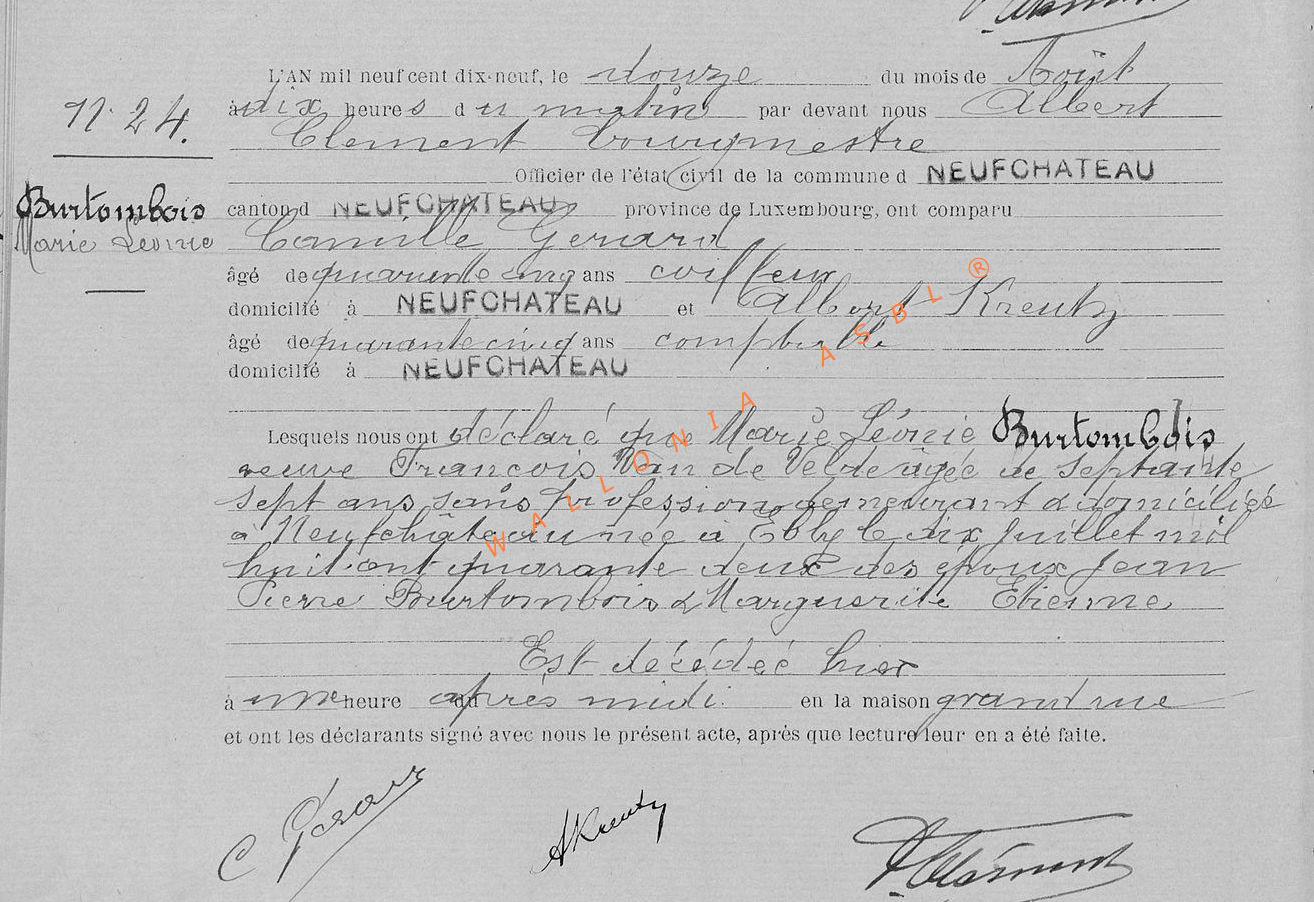 L'AN mil neuf cent dix-neuf, le douze du mois de Août
N° 24. à dix heures du matin par devant nous Albert
Clement bourgmestre
Officier de l'état civil de la commune d NEUFCHATEAU
Burtombois canton d NEUFCHATEAU province de Luxembourg, ont comparu
Marie Léonie Camille Gerard
âgé de quarante cinq ans coiffeur
domicilié à NEUFCHATEAU et Albert Kreutz
âgé de quarante cinq ans comptable
domicilié à NEUFCHATEAU
Lesquels nous ont déclaré que Marie Léonie Burtombois
veuve François Van de Velde âgée de septante
sept ans sans profession demeurant & domiciliée
à Neufchâteau née à Ebly le dix Juillet mil
huit cent quarante deux des époux Jean
Pierre Burtombois & Marguerite Etienne
Est décédée hier
à une heure après midi. en la maison grand rue
et ont les déclarants signé avec nous le présent acte, après que lecture leur en a été faite.
C Gerard AKreutz A. Clément
WALLONIA ASBL ®